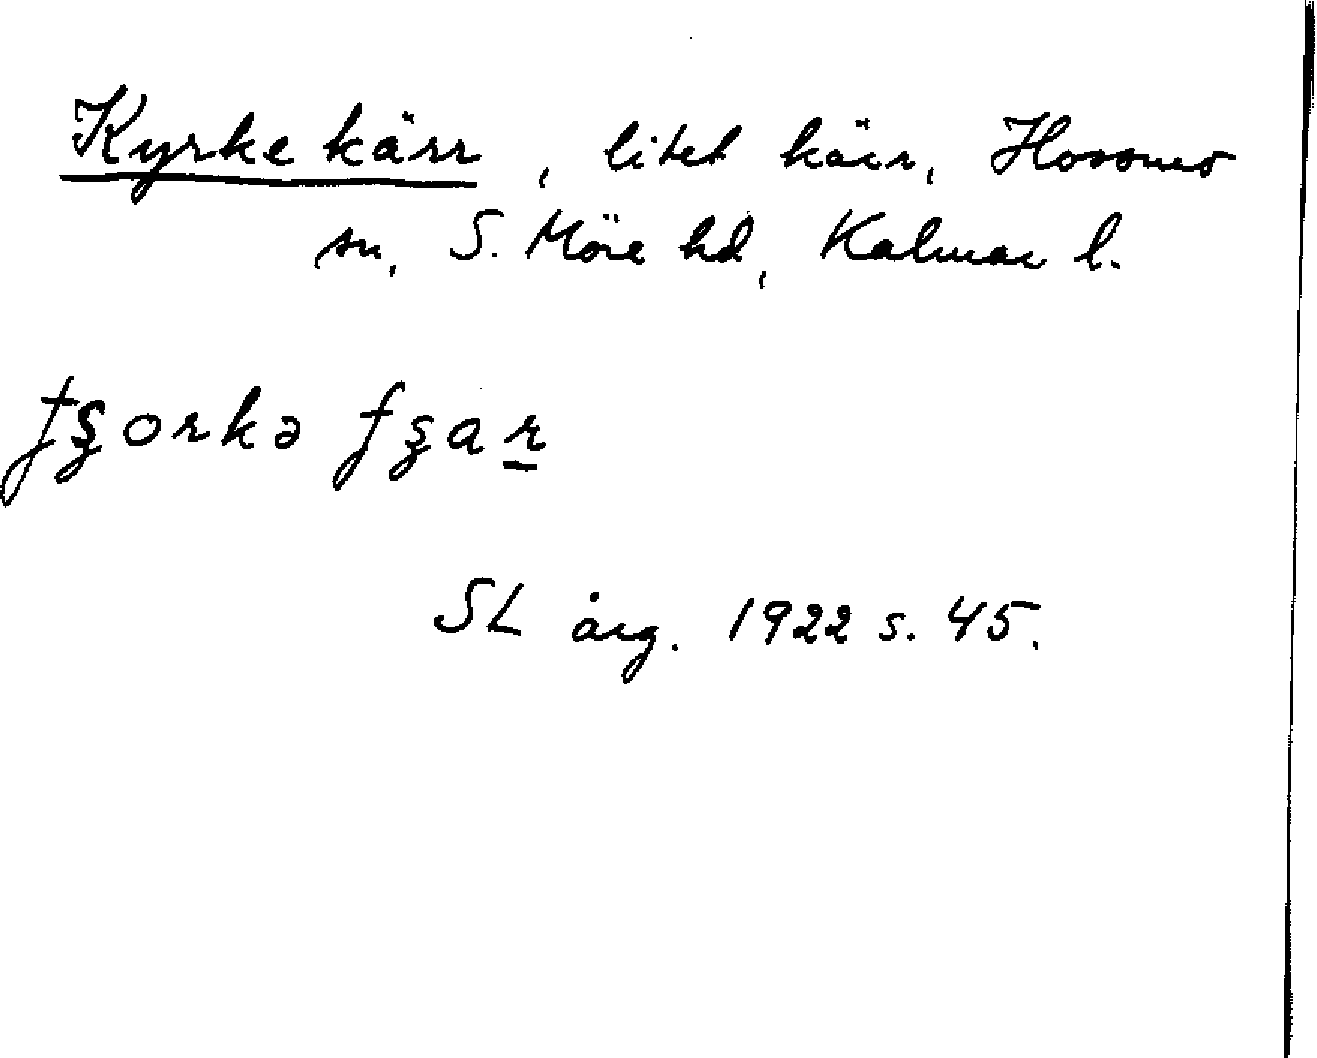 Kyrkekärr, litet kärr, Hossmo
sn, S. Möre hd, Kalmar l.
ƭʂorkə ƭʂar
SL årg. 1922 s. 45.